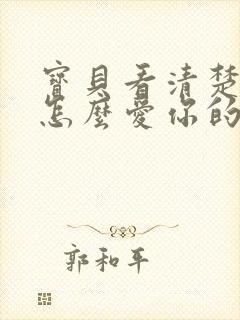 寶貝看清楚
怎麼愛你的
郭和平